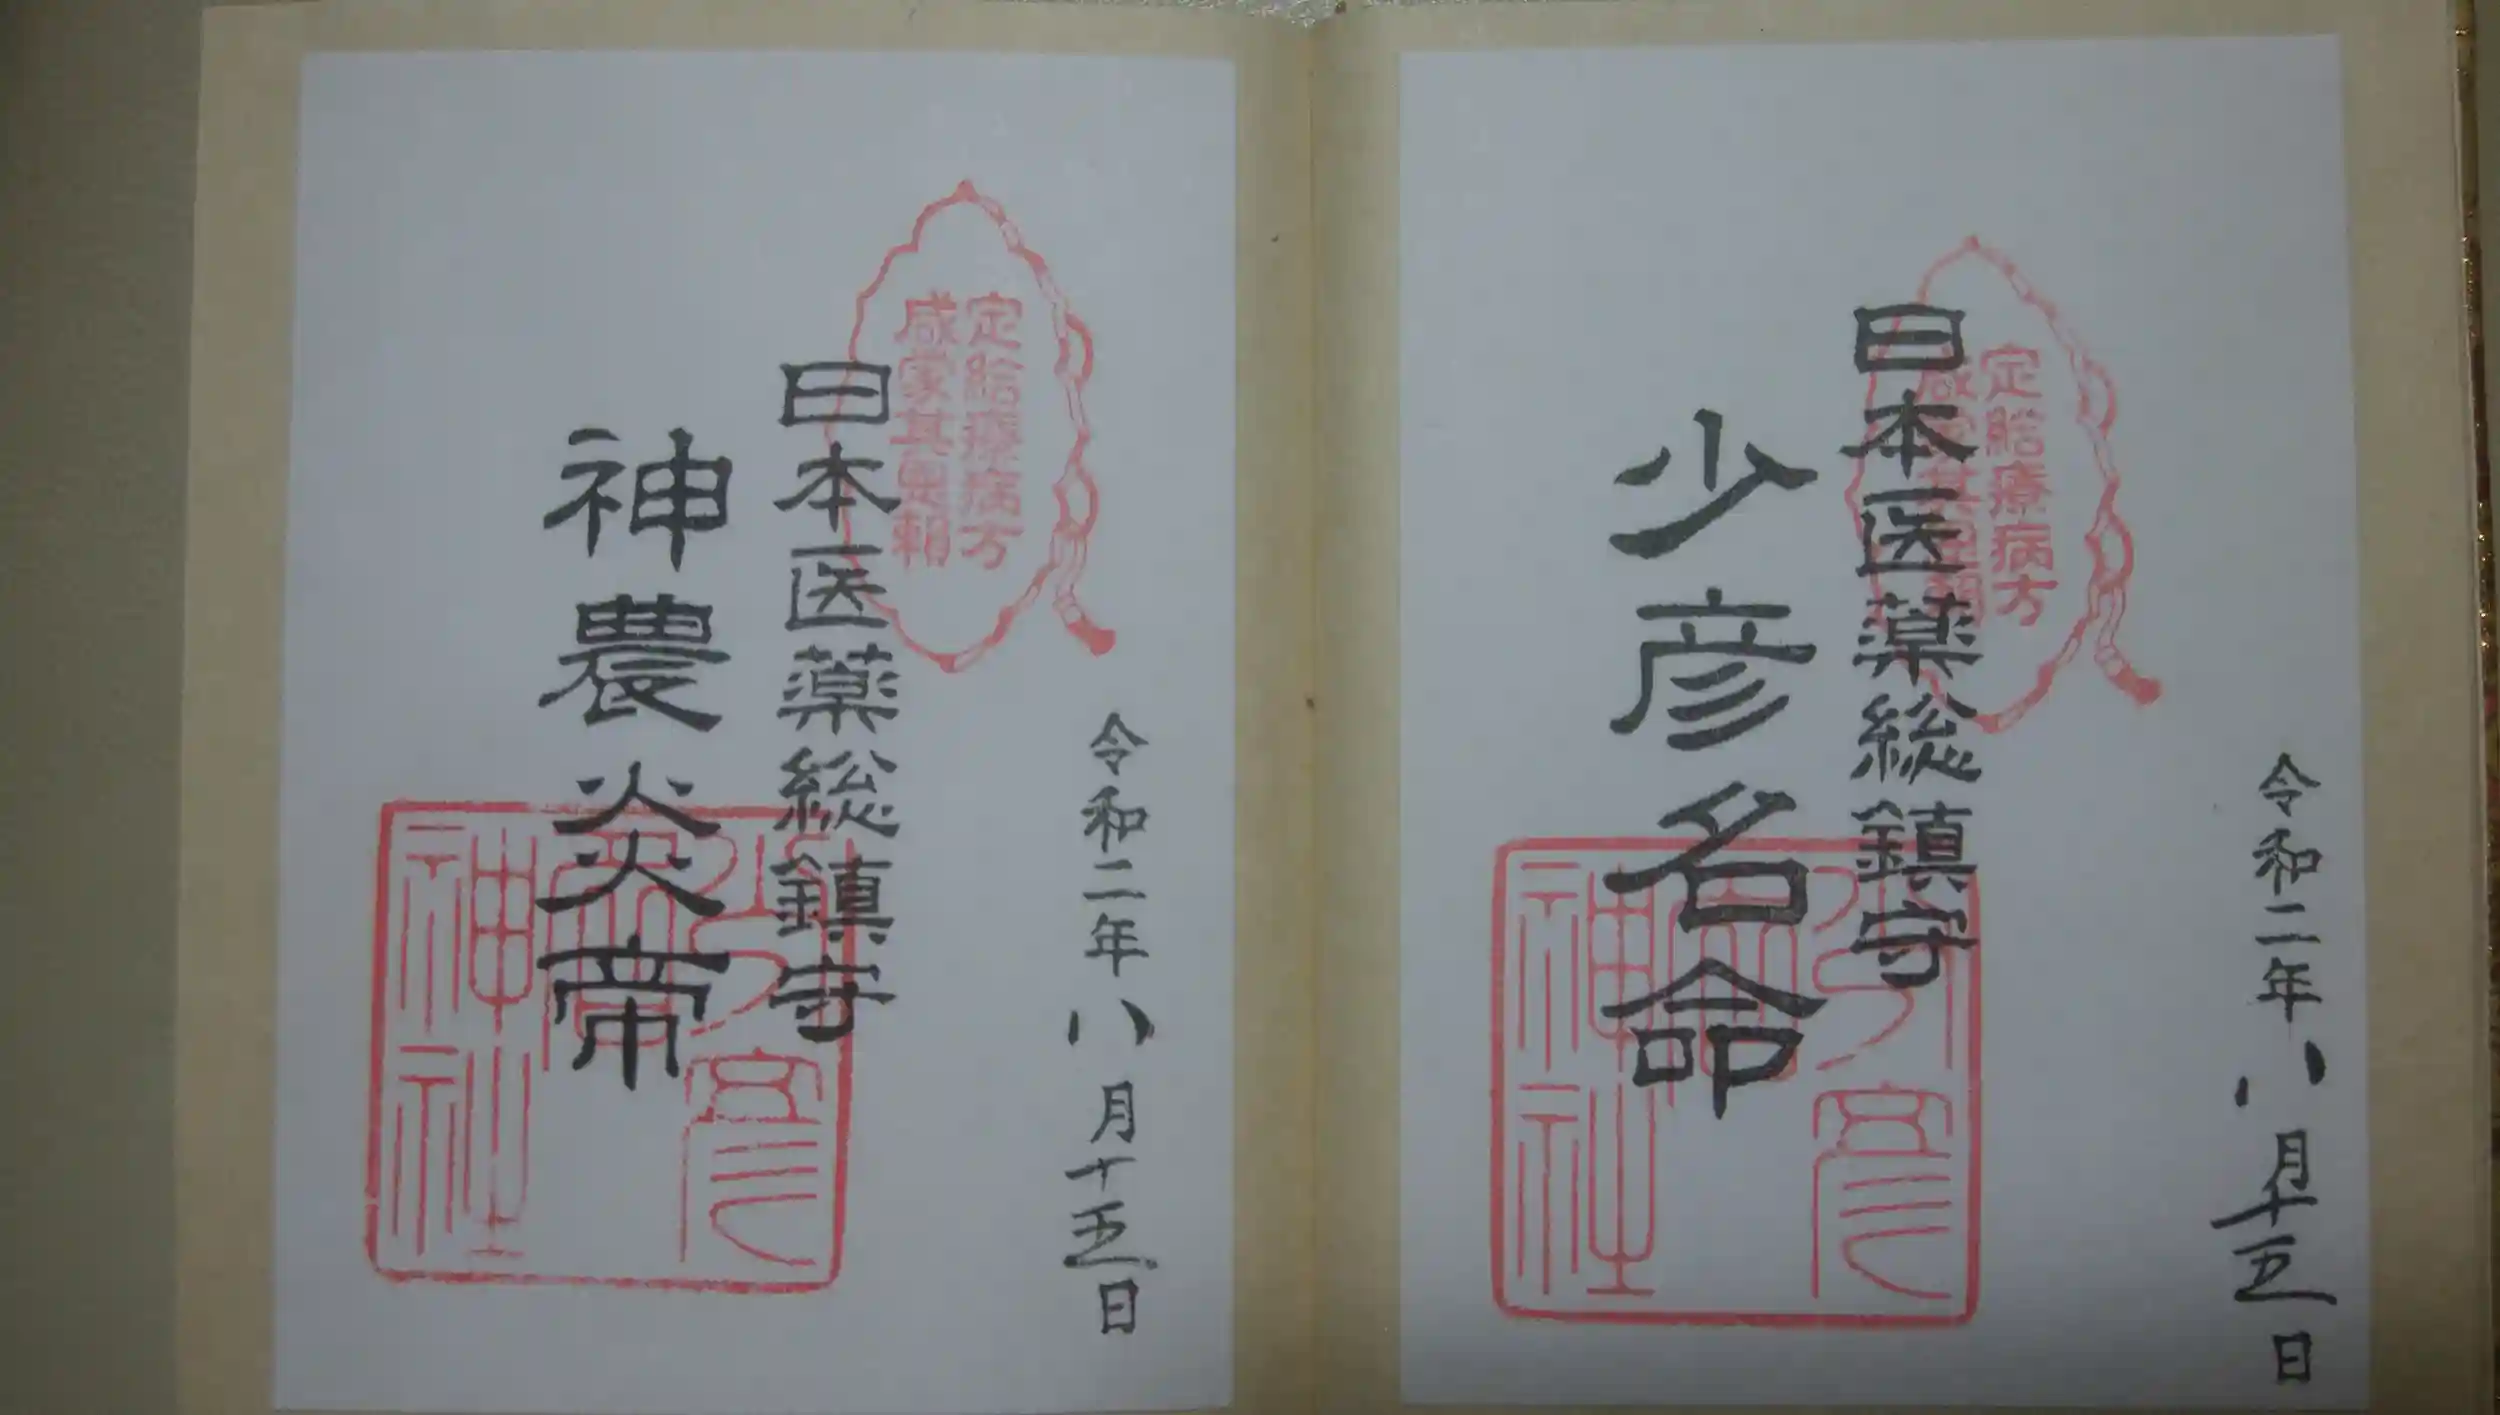 令和二年八月十五日
定給療病方
咸蒙其恩頼
日本医薬総鎮守
少彦名命
少彦名
神社
令和二年八月十五日
定給療病方
咸蒙其恩頼
日本医薬総鎮守
神農炎帝
少彦名
神社